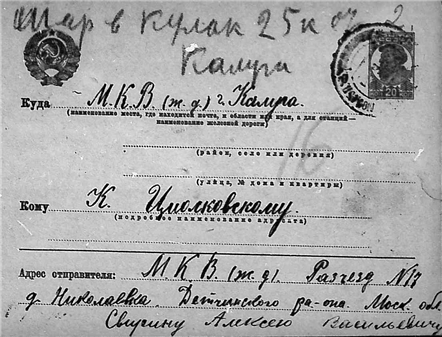 Шар в кулак 25к от 2
Калуга
Куда М.К.В (ж.д.) г. Калуга.
(наименование места, где находится почта, и области или края, а для станций—
наименование железной дороги)
(район, село или деревня)
16
(улица, № дома и квартиры)
Кому К. Циолковскому
(подробное наименование адресата)
Адрес отправителя: М К В (ж.д.) Разъезд №17
д. Николаевка. Детчинского ра-она. Моск. обл.
Свирину Алексею Васильевичу